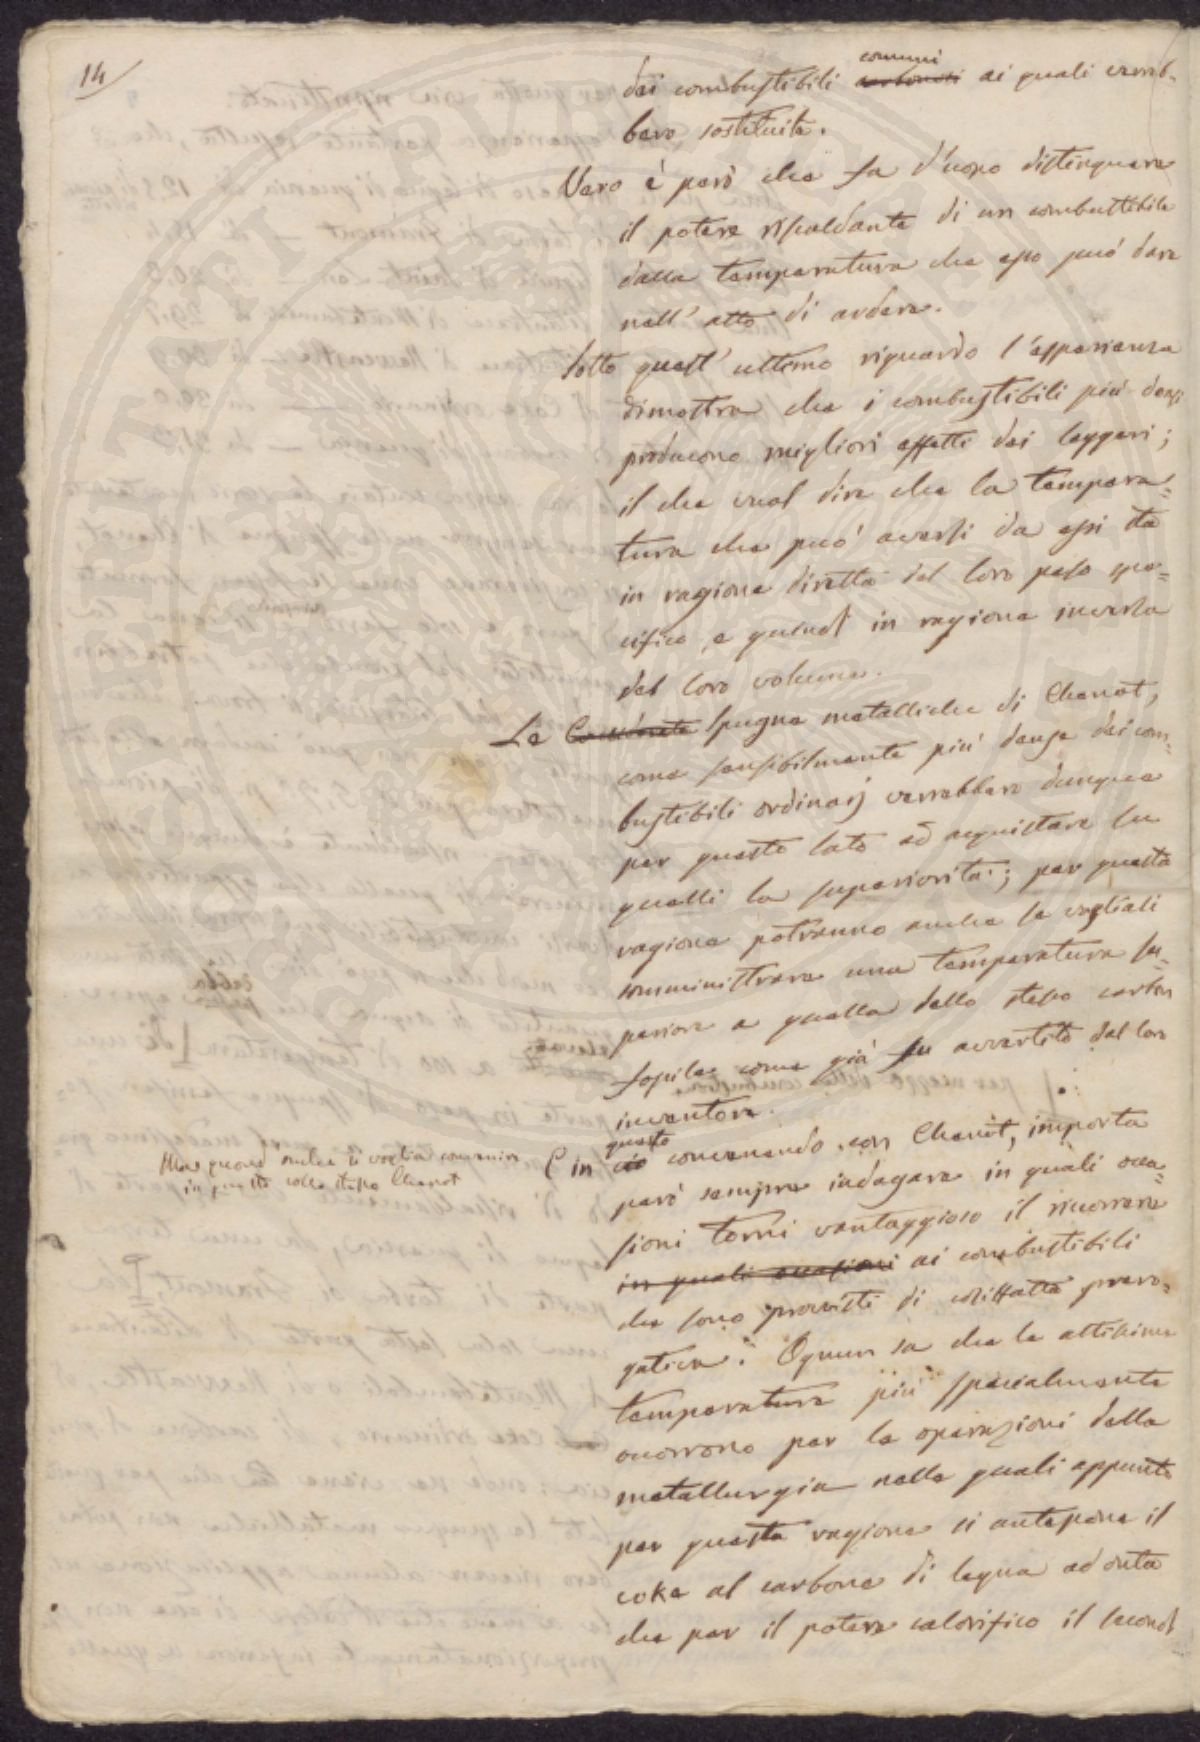 14
dei combustibili comuni carbonosi ai quali verreb-
bero sostituite.
Vero è però che fa d'uopo distinguere
il potere riscaldante di un combustibile
dalla temperatura che esso può dare
nell'atto di ardere.
Sotto quest'ultimo riguardo l'esperienza
dimostra che i combustibili più densi
producono migliori effetti dei leggeri;
il che vual dire che la tempera-
tura che può aversi da essi sta
in ragione diretta del loro peso spe-
cifico, e quindi in ragione inversa
del loro volume.
Le Spugne metalliche di Chenot,
come sensibilmente più dense dei com-
bustibili ordinarj verrebbero dunque
per questo lato ad acquistare su
quelli la superiorità; per questa
ragione potranno anche le
somministrare una temperatura su-
periore a quella dello stesso carbon
fossile come già fu avvertito dal loro
inventore.
Ma quand'anche si voglia convenire
in questo collo stesso Chenot
E in questo ciò convenendo con Chenot, importa
però sempre indagare in quali occa-
sioni torni vantaggioso il ricorrere
in quali occasioni ai combustibili
che sono provvisti di cosiffatta prero-
gativa. Ognun sa che le altissime
temperature più specialmente
occorrono per le operazioni della
metallurgia nelle quali appunto
per questa ragione si antepone il
coke al carbone di legna ad onta
che per il potere calorifico il secondo